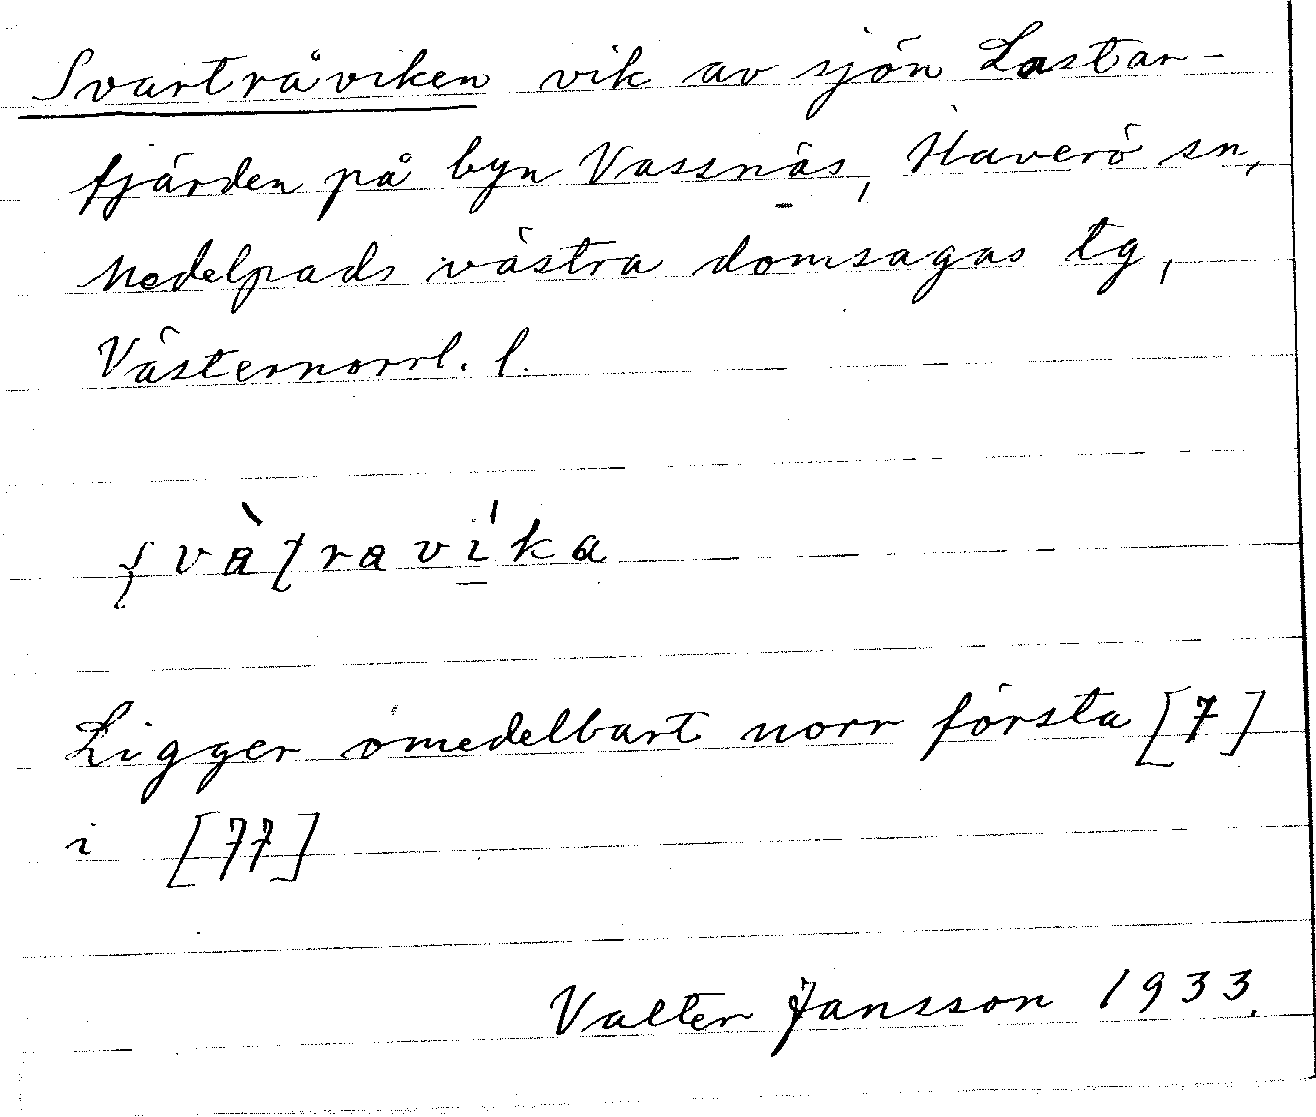 Svartråviken vik av sjön Lastar-
fjärden på byn Vassnäs, Haverö sn,
Medelpads västra domsagas tg,
Västernorrl. l.
ʂvàʈravíka
Ligger omedelbart norr första [7]
i [77]
Valter Jansson 1933.